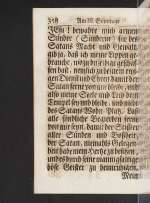 318 Am III. Sonntage
JEsu! bewahre mich armen
Sünder (Sünderin) für des
Satans Macht und Gewalt,
gib ja, daß ich meine Lippen ge-
brauche, wozu du sie erschaf-
fen hast, nemlich zu deinem ewi-
gen Dienst und Ehre; damit der
Satan ferne von mir bleibe, und
also meine Seele und Leib dein
Tempel sey und bleibe, und nicht
des Satans Wohn-Platz. Laß
alle sündliche Begierden ferne
von mir seyn, damit der Stifter
aller Sünden und Bosheit,
der Satan, niemahls Gelegen-
heit habe mein Hertz zu besitzen,
und es durch seine mannigfaltige
böse Geister zu beunruhigen.